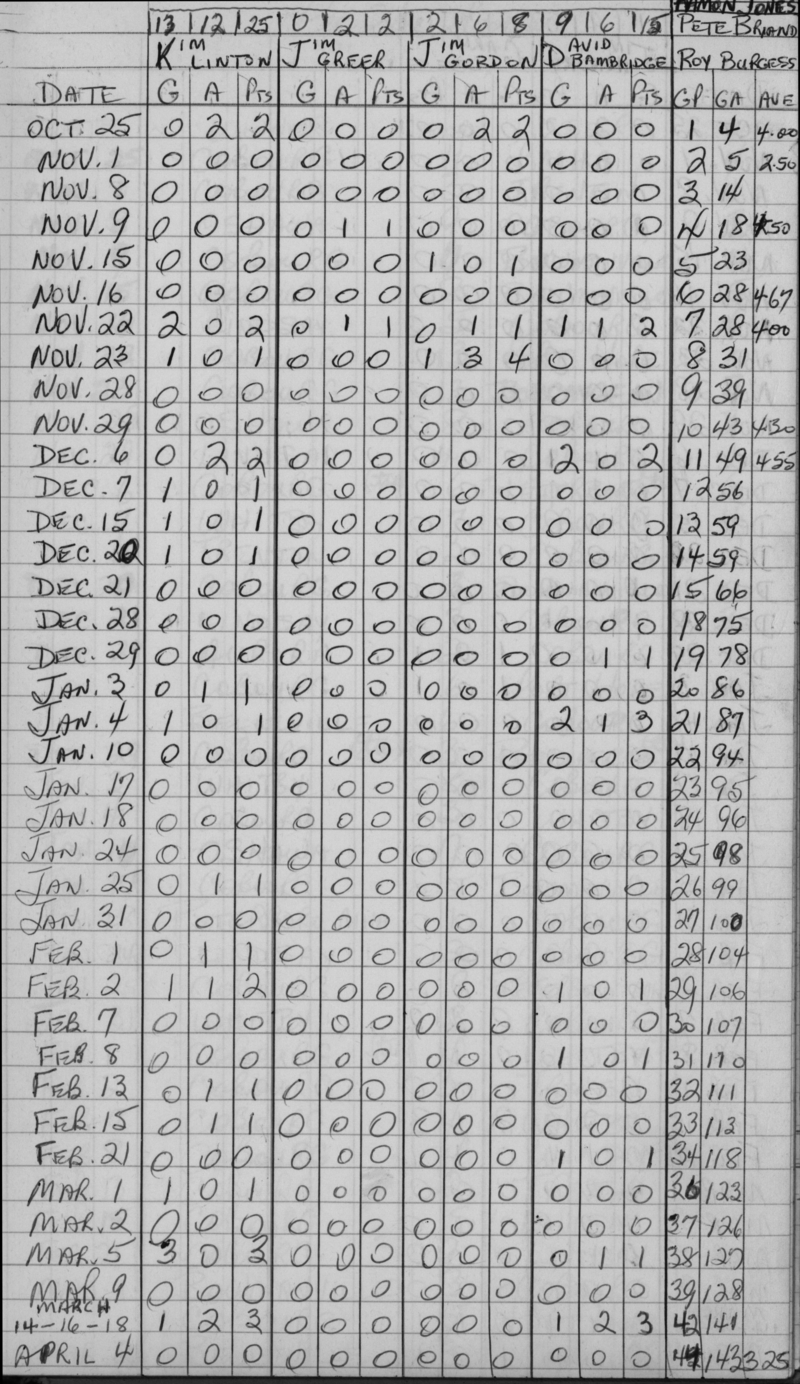 RAMON JONES
13 12 25 0 2 2 2 6 8 9 6 15 PETE BRIAND
KIM LINTON JIM GREER JIM GORDON DAVID BAMBRIDGE ROY BURGESS
DATE G A PTS G A PTS G A PTS G A PTS GP GA AVE
OCT. 25 0 2 2 0 0 0 0 2 2 0 0 0 1 4 4.00
NOV. 1 0 0 0 0 0 0 0 0 0 0 0 0 2 5 2.50
NOV. 8 0 0 0 0 0 0 0 0 0 0 0 0 3 14
NOV. 9 0 0 0 0 1 1 0 0 0 0 0 0 4 18 4.50
NOV. 15 0 0 0 0 0 0 1 0 1 0 0 0 5 23
NOV. 16 0 0 0 0 0 0 0 0 0 0 0 0 6 28 4.67
NOV. 22 2 0 2 0 1 1 0 1 1 1 1 2 7 28 4.00
NOV. 23 1 0 1 0 0 0 1 3 4 0 0 0 8 31
NOV. 28 0 0 0 0 0 0 0 0 0 0 0 0 9 39
NOV. 29 0 0 0 0 0 0 0 0 0 0 0 0 10 43 4.30
DEC. 6 0 2 2 0 0 0 0 0 0 2 0 2 11 49 4.55
DEC. 7 1 0 1 0 0 0 0 0 0 0 0 0 12 56
DEC. 15 1 0 1 0 0 0 0 0 0 0 0 0 13 59
DEC. 20 1 0 1 0 0 0 0 0 0 0 0 0 14 59
DEC. 21 0 0 0 0 0 0 0 0 0 0 0 0 15 66
DEC. 28 0 0 0 0 0 0 0 0 0 0 0 0 18 75
DEC. 29 0 0 0 0 0 0 0 0 0 0 1 1 19 78
JAN. 3 0 1 1 0 0 0 0 0 0 0 0 0 20 86
JAN. 4 1 0 1 0 0 0 0 0 0 2 1 3 21 87
JAN. 10 0 0 0 0 0 0 0 0 0 0 0 0 22 94
JAN. 17 0 0 0 0 0 0 0 0 0 0 0 0 23 95
JAN. 18 0 0 0 0 0 0 0 0 0 0 0 0 24 96
JAN. 24 0 0 0 0 0 0 0 0 0 0 0 0 25 98
JAN. 25 0 1 1 0 0 0 0 0 0 0 0 0 26 99
JAN 31 0 0 0 0 0 0 0 0 0 0 0 0 27 100
FEB. 1 0 1 1 0 0 0 0 0 0 0 0 0 28 104
FEB. 2 1 1 2 0 0 0 0 0 0 1 0 1 29 106
FEB. 7 0 0 0 0 0 0 0 0 0 0 0 0 30 107
FEB. 8 0 0 0 0 0 0 0 0 0 1 0 1 31 110
FEB. 13 0 1 1 0 0 0 0 0 0 0 0 0 32 111
FEB. 15 0 1 1 0 0 0 0 0 0 0 0 0 33 113
FEB. 21 0 0 0 0 0 0 0 0 0 1 0 1 34 118
MAR. 1 1 0 1 0 0 0 0 0 0 0 0 0 36 123
MAR. 2 0 0 0 0 0 0 0 0 0 0 0 0 37 126
MAR. 5 3 0 3 0 0 0 0 0 0 0 1 1 38 127
MAR 9 0 0 0 0 0 0 0 0 0 0 0 0 39 128
MARCH
14-16-18 1 2 3 0 0 0 0 0 0 1 2 3 42 141
APRIL 4 0 0 0 0 0 0 0 0 0 0 0 0 44 143 3.25